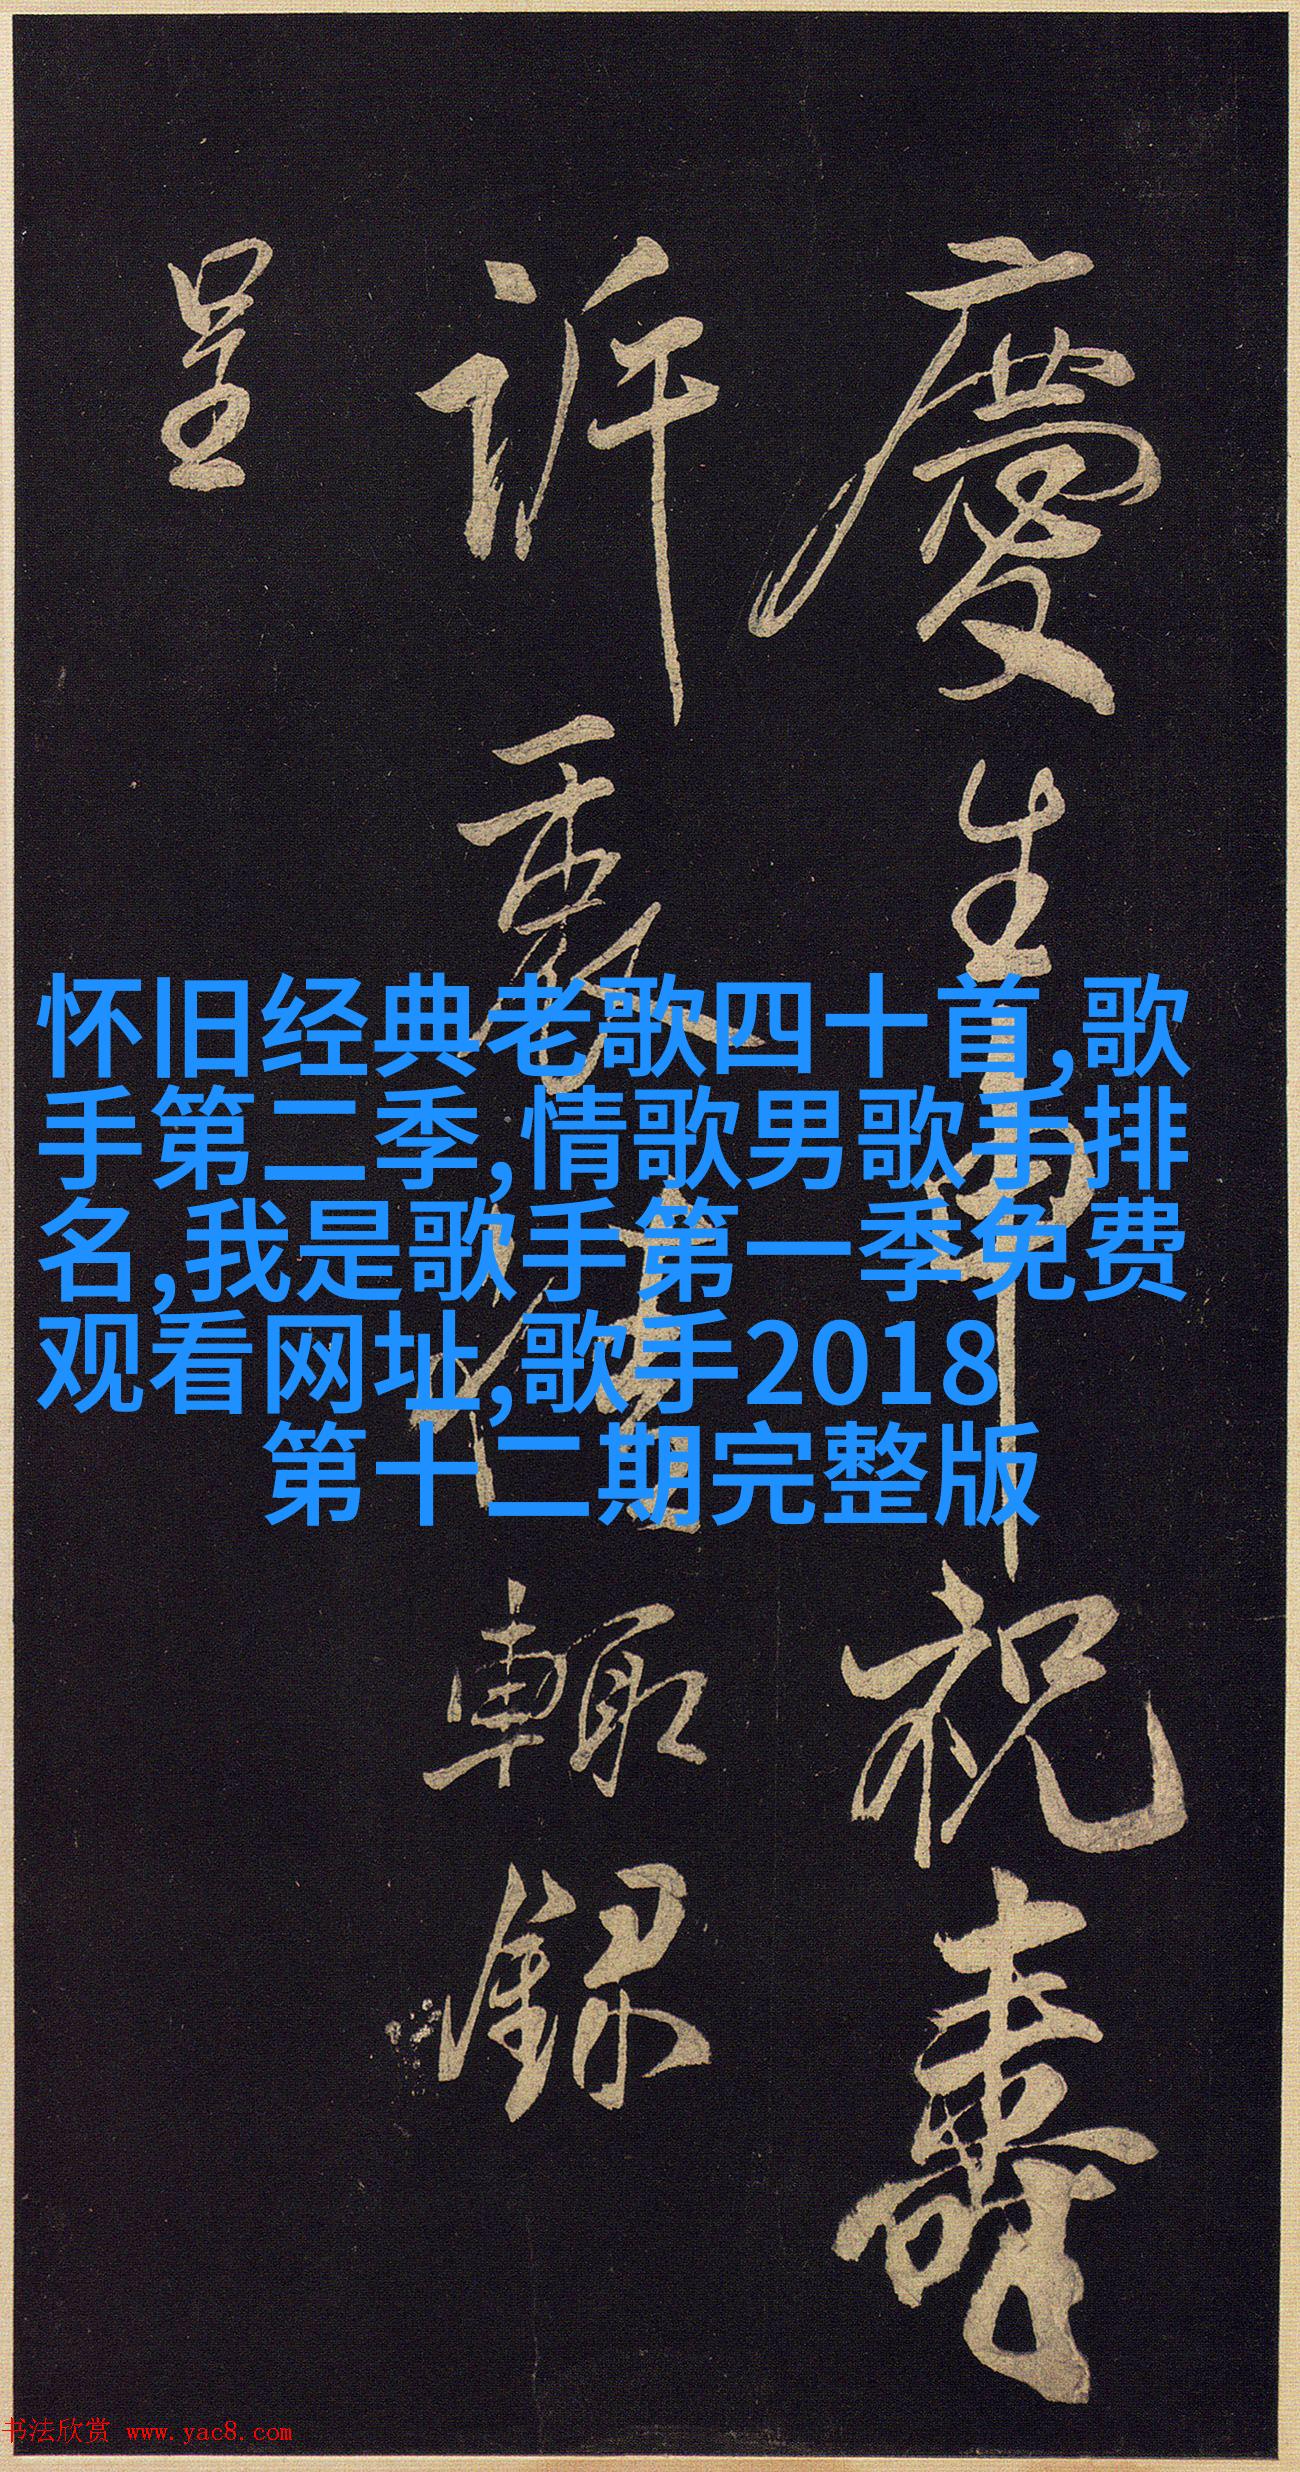 慶生申祝壽
訴衷情輒錄
呈
怀旧经典老歌四十首,歌
手第二季,情歌男歌手排
名,我是歌手第一季免费
观看网址,歌手2018
第十二期完整版
书法欣赏 www.yac8.com